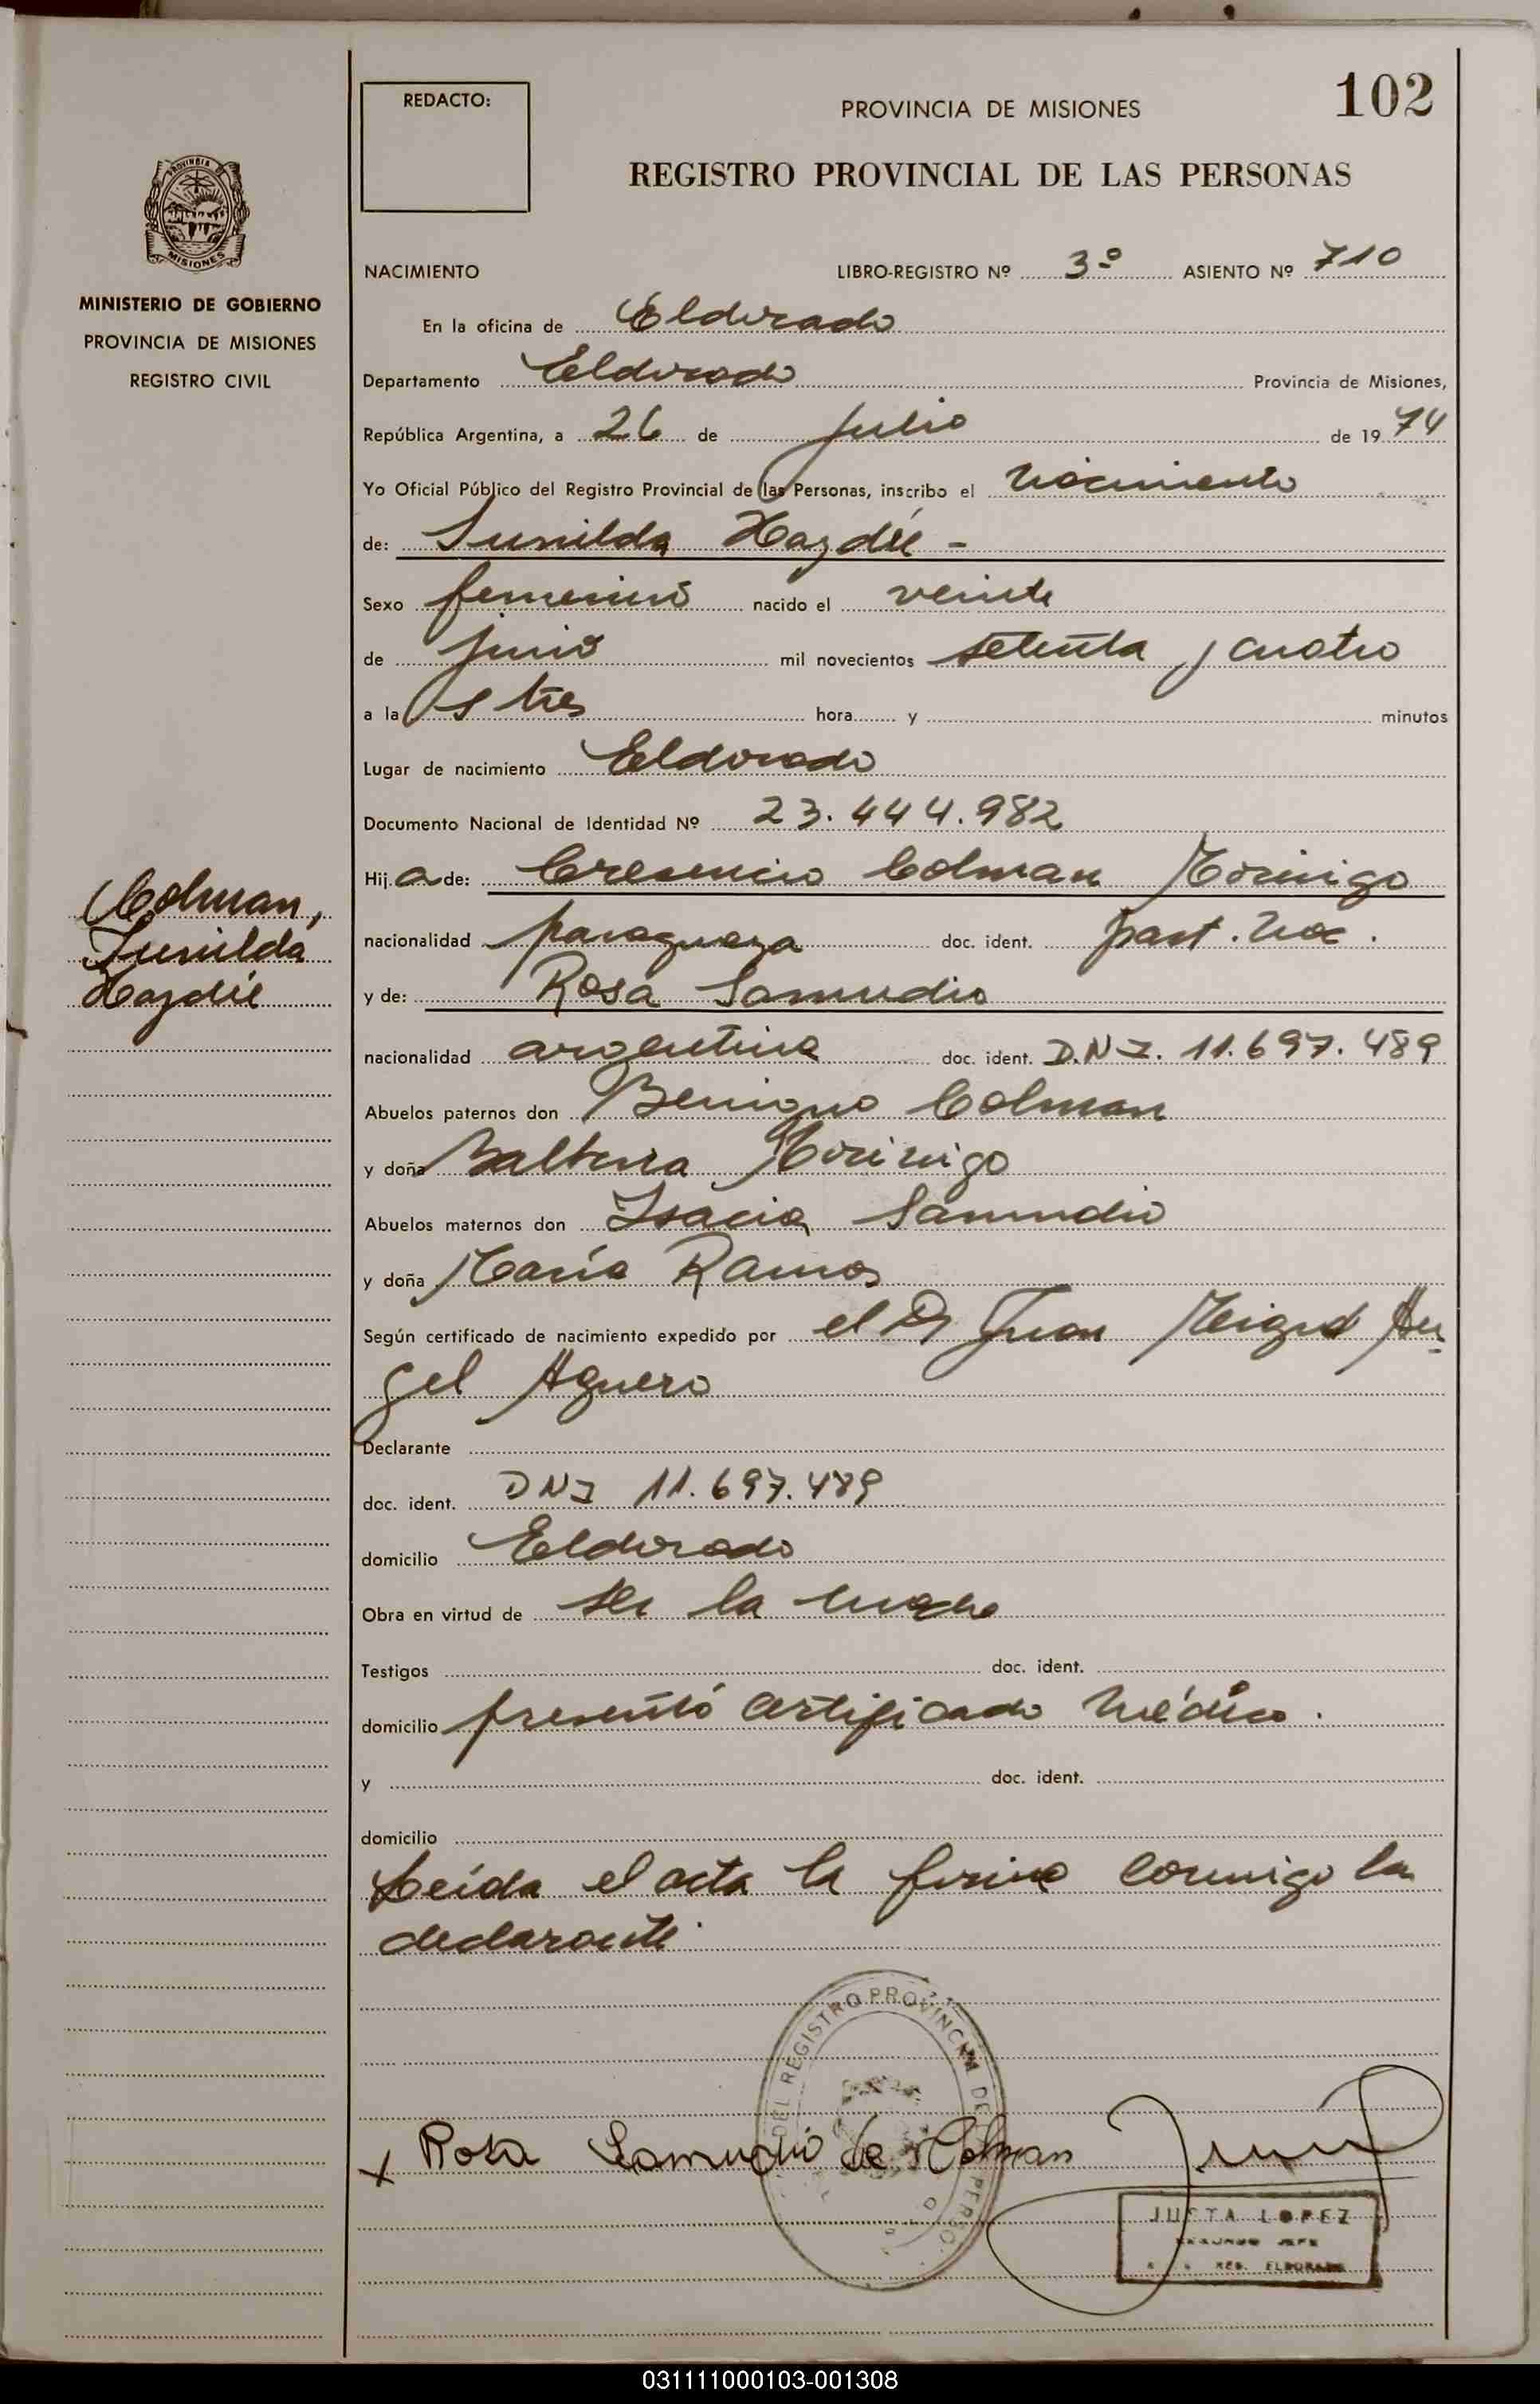 102
REDACTO:
PROVINCIA DE MISIONES
REGISTRO PROVINCIAL DE LAS PERSONAS
PROVINCIA
MISIONES
MINISTERIO DE GOBIERNO
PROVINCIA DE MISIONES
REGISTRO CIVIL
NACIMIENTO LIBRO-REGISTRO Nº 3º ASIENTO Nº 710
En la oficina de Eldorado
Departamento Eldorado Provincia de Misiones,
República Argentina, a 26 de Julio de 19 74
Yo Oficial Público del Registro Provincial de las Personas, inscribo el nacimiento
de: Sunilda Haydée -
Sexo femenino nacido el veinte
de junio mil novecientos setenta y cuatro
a las tres hora y minutos
Lugar de nacimiento Eldorado
Documento Nacional de Identidad Nº 23.444.982
Hij a de: Cresencio Colman Morinigo
Colman,
Sunilda
Haydée
nacionalidad paraguaya doc. ident. part. nac.
y de: Rosa Samudio
nacionalidad argentina doc. ident. D.N.I. 11.697.489
Abuelos paternos don Benigno Colman
y doña Morinigo
Abuelos maternos don Isacia Samudio
y doña María Ramos
Según certificado de nacimiento expedido por el Dr Juan Miguel An-
gel Aguero
Declarante
doc. ident. DNI 11.697.489
domicilio Eldorado
Obra en virtud de ser la madre
Testigos doc. ident.
domicilio presentó certificado médico.
y doc. ident.
domicilio
Leída el acta la firma conmigo la
declarante.
DEL REGISTRO PROVINCIAL DE
x Rosa Samudio de Colman
JUSTA LOPEZ
SEGUNDO JEFE
REG. ELDORADO
031111000103-001308